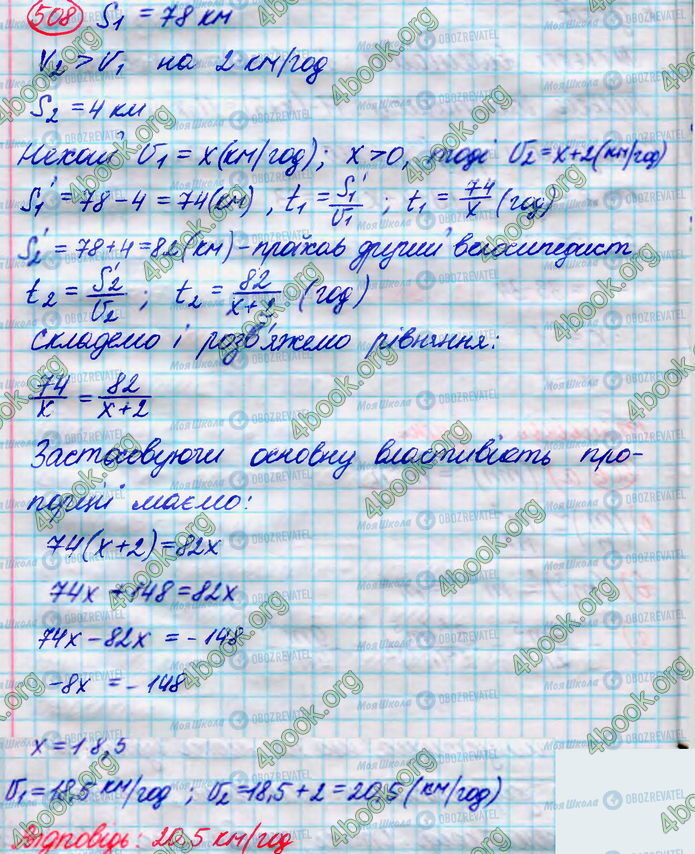 508 S₁ = 78 км
V₂ > V₁ на 2 км/год
S₂ = 4 км
Нехай V₁ = x (км/год); x > 0, тоді V₂ = x + 2 (км/год)
S₁' = 78 - 4 = 74 (км), t₁ = S₁'/V₁ ; t₁ = 74/x (год)
S₂' = 78 + 4 = 82 (км) - проїхав другий велосипедист
t₂ = S₂'/V₂ ; t₂ = 82/(x+2) (год)
Складемо і розв'яжемо рівняння:
74/x = 82/(x+2)
Застосовуючи основну властивість про-
порції маємо:
74(x+2) = 82x
74x + 148 = 82x
74x - 82x = -148
-8x = -148
x = 18,5
V₁ = 18,5 км/год ; V₂ = 18,5 + 2 = 20,5 (км/год)
Відповідь: 20,5 км/год
4book.org
МояШкола OBOZREVATEL